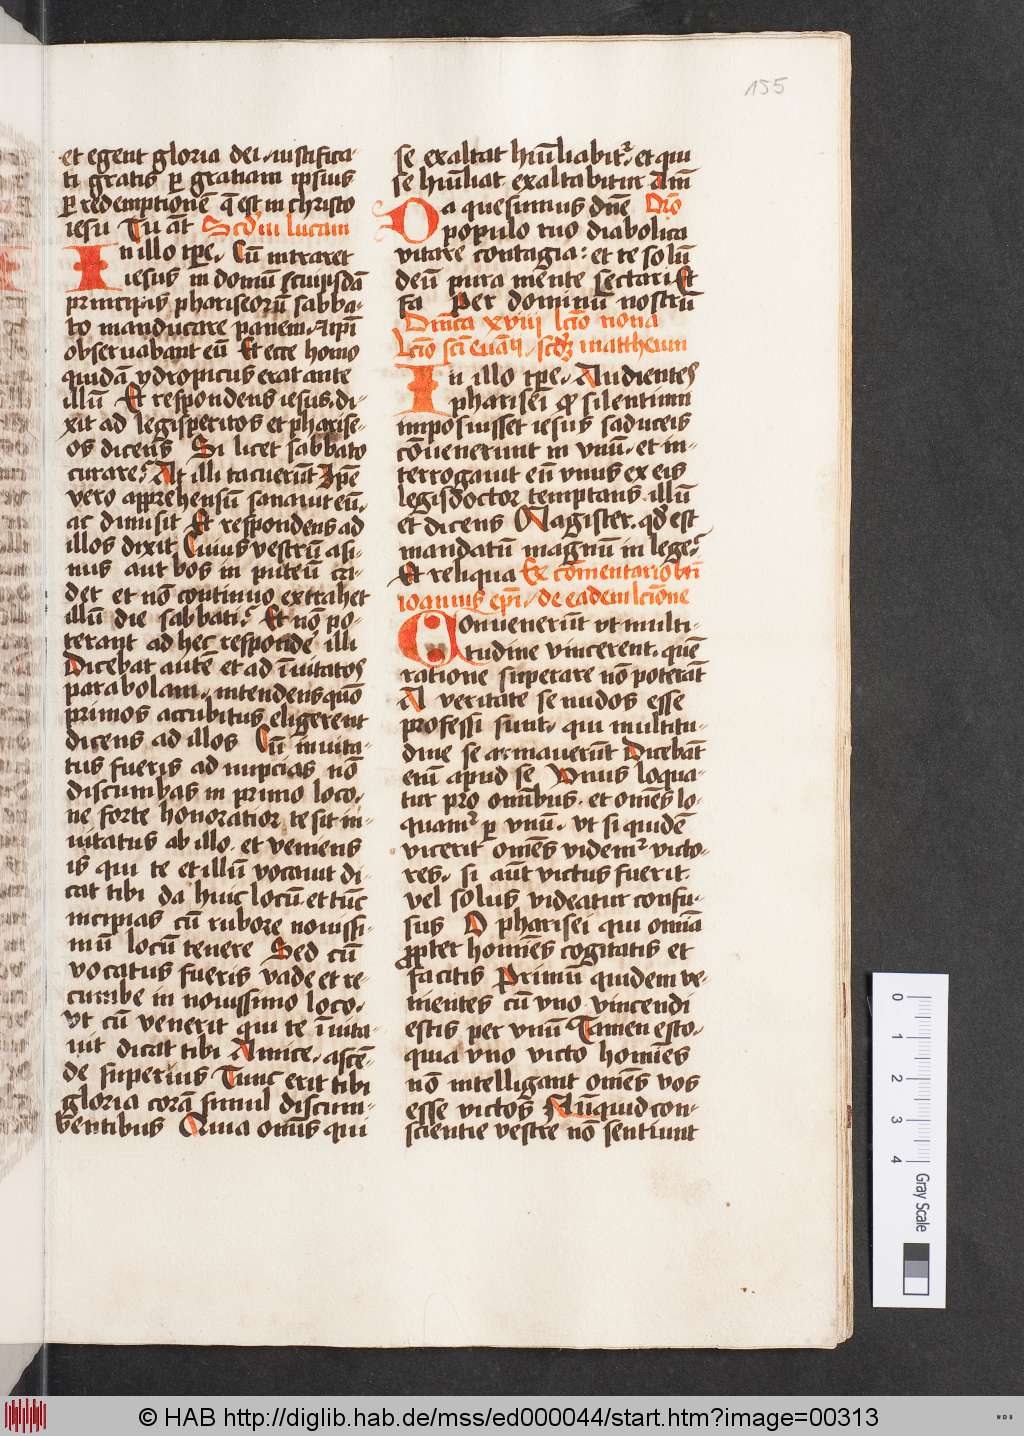 155
et egent gloria dei. iustifica-
ti gratis ꝑ gratiam ipsius
ꝑ redemptionē q̄ est in christo
iesu Tu aūt Scd̄m lucam
In illo tp̄e. Cū intraret
iesus in domū cuiusdā
principis phariseorū sabba-
to manducare panem. Et ip̄i
obseruabant eū Et ecce homo
quidā ydropicus erat ante
illū Et respondens iesus. di-
xit ad legisperitos et pharise-
os dicens Si licet sabbato
curare? At illi tacuerūt Ip̄e
vero apprehensū sanauit eū.
ac dimisit Et respondens ad
illos dixit Cuius vestrū asi-
nus aut bos in puteū ca-
det et nō continuo extrahet
illū die sabbati? Et nō po-
terant ad hec respondē illi
Dicebat autē et ad īuitatos
parabolam. intendens quō
primos accubitus eligerent
dicens ad illos Cū inuita-
tus fueris ad nupcias nō
discumbas in primo loco.
ne forte honoratior te sit in-
uitatus ab illo. et veniens
is qui te et illū vocauit di-
cat tibi da huic locū. et tūc
incipias cū rubore nouissi-
mū locū tenere Sed cū
vocatus fueris vade et re-
cumbe in nouissimo loco.
vt cū venerit qui te īuita-
uit dicat tibi Amice. ascē-
de superius Tunc erit tibi
gloria corā simul discum-
bentibus Quia om̄s qui
se exaltat hūiliabit᷑. et qui
se hūiliat exaltabitur Am̄
Da quesumus dn̄e Or̄o
populo tuo diabolica
vitare contagia: et te solū
deū pura mente sectari Et
fa Per dominū nostrū
Dn̄ica xviij lc̄io nona
Lc̄io sc̄i euāḡij. scd̄ꝫ mattheum
In illo tp̄e. Audientes
pharisei ꝙ silentium
imposuisset iesus saduceis
cōuenerunt in vnū. et in-
terrogauit eū vnus ex eis
legisdoctor temptans illū
et dicens Magister. qd̄ est
mandatū magnū in lege?
Et reliqua Ex cōmentario bt̄i
ioannis ep̄i. de eadem lc̄ione
Conuenerūt vt multi-
tudine vincerent. quē
ratione superare nō poterāt
A veritate se nudos esse
professi sunt. qui multitu-
dine se armauerūt Dicebāt
enī apud se Vnus loqua-
tur pro omībus. et om̄es lo-
quam᷑ ꝑ vnū. vt si quidē
vicerit om̄es videm᷑ victo-
res. si aūt victus fuerit.
vel solus videatur confu-
sus O pharisei qui omīa
ꝓpter homīes cogitatis et
facitis Primū quidem ve-
nientes cū vno vincendi
estis per vnū Tamen esto.
quia vno victo homīes
nō intelligant om̄es vos
esse victos Nūquid con-
scientie vestre nō sentiunt
0 1 2 3 4
Gray Scale
© HAB http://diglib.hab.de/mss/ed000044/start.htm?image=00313